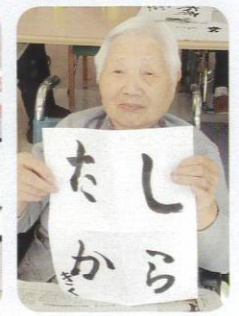 しら
たか
きく